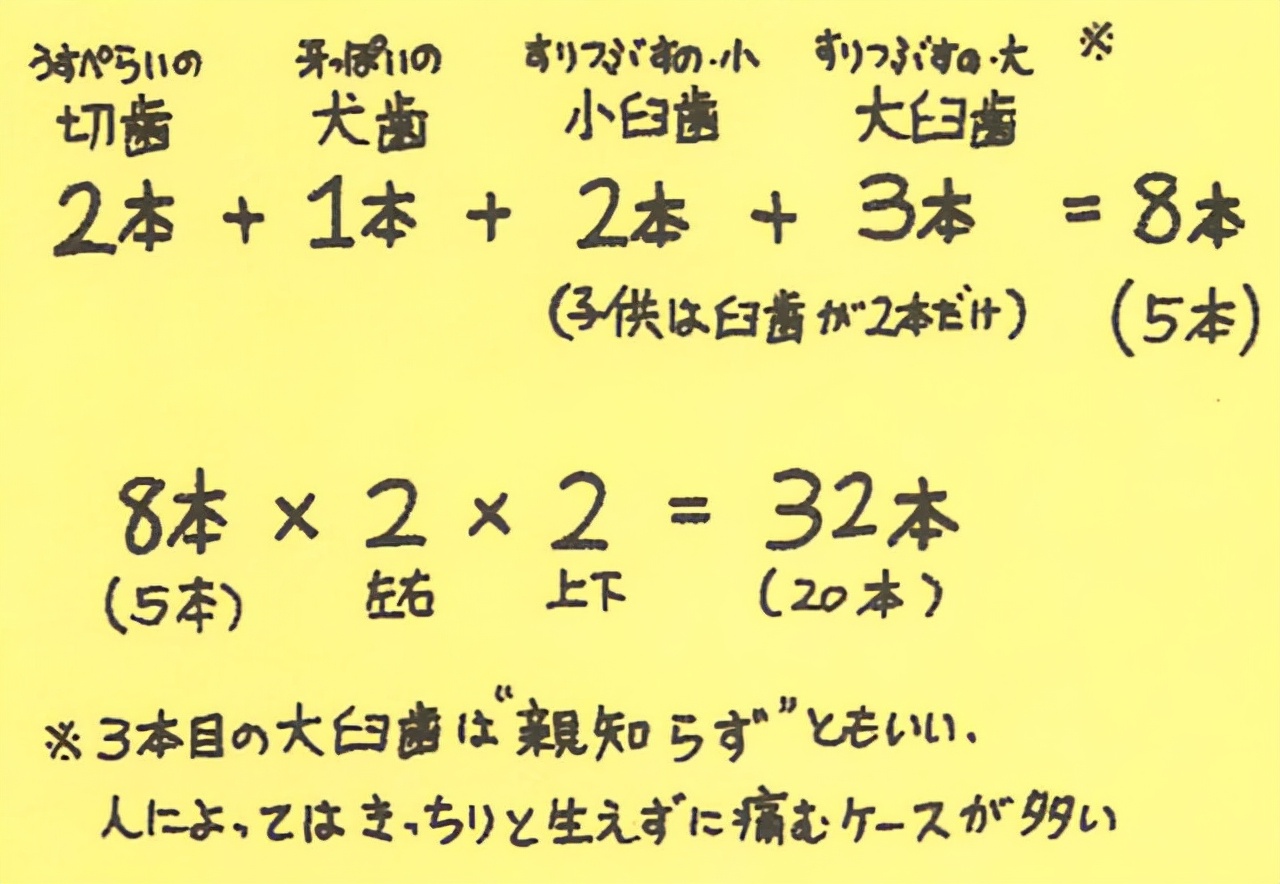 うすぺらいの 牙っぽいの すりつぶすの・小 すりつぶすの・大 ※
切歯 犬歯 小臼歯 大臼歯
2本 + 1本 + 2本 + 3本 = 8本
(子供は臼歯が2本だけ) (5本)
8本 × 2 × 2 = 32本
(5本) 左右 上下 (20本)
※3本目の大臼歯は“親知らず”ともいい、
人によってはきっちりと生えずに痛むケースが多い